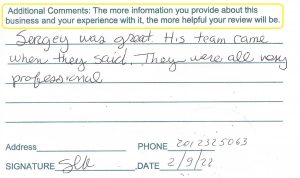 Additional Comments: The more information you provide about this
business and your experience with it, the more helpful your review will be.
Sergey was great. His team came
when they said. They were all very
professional
Address
PHONE 2012325063
SIGNATURE
DATE 2/9/22